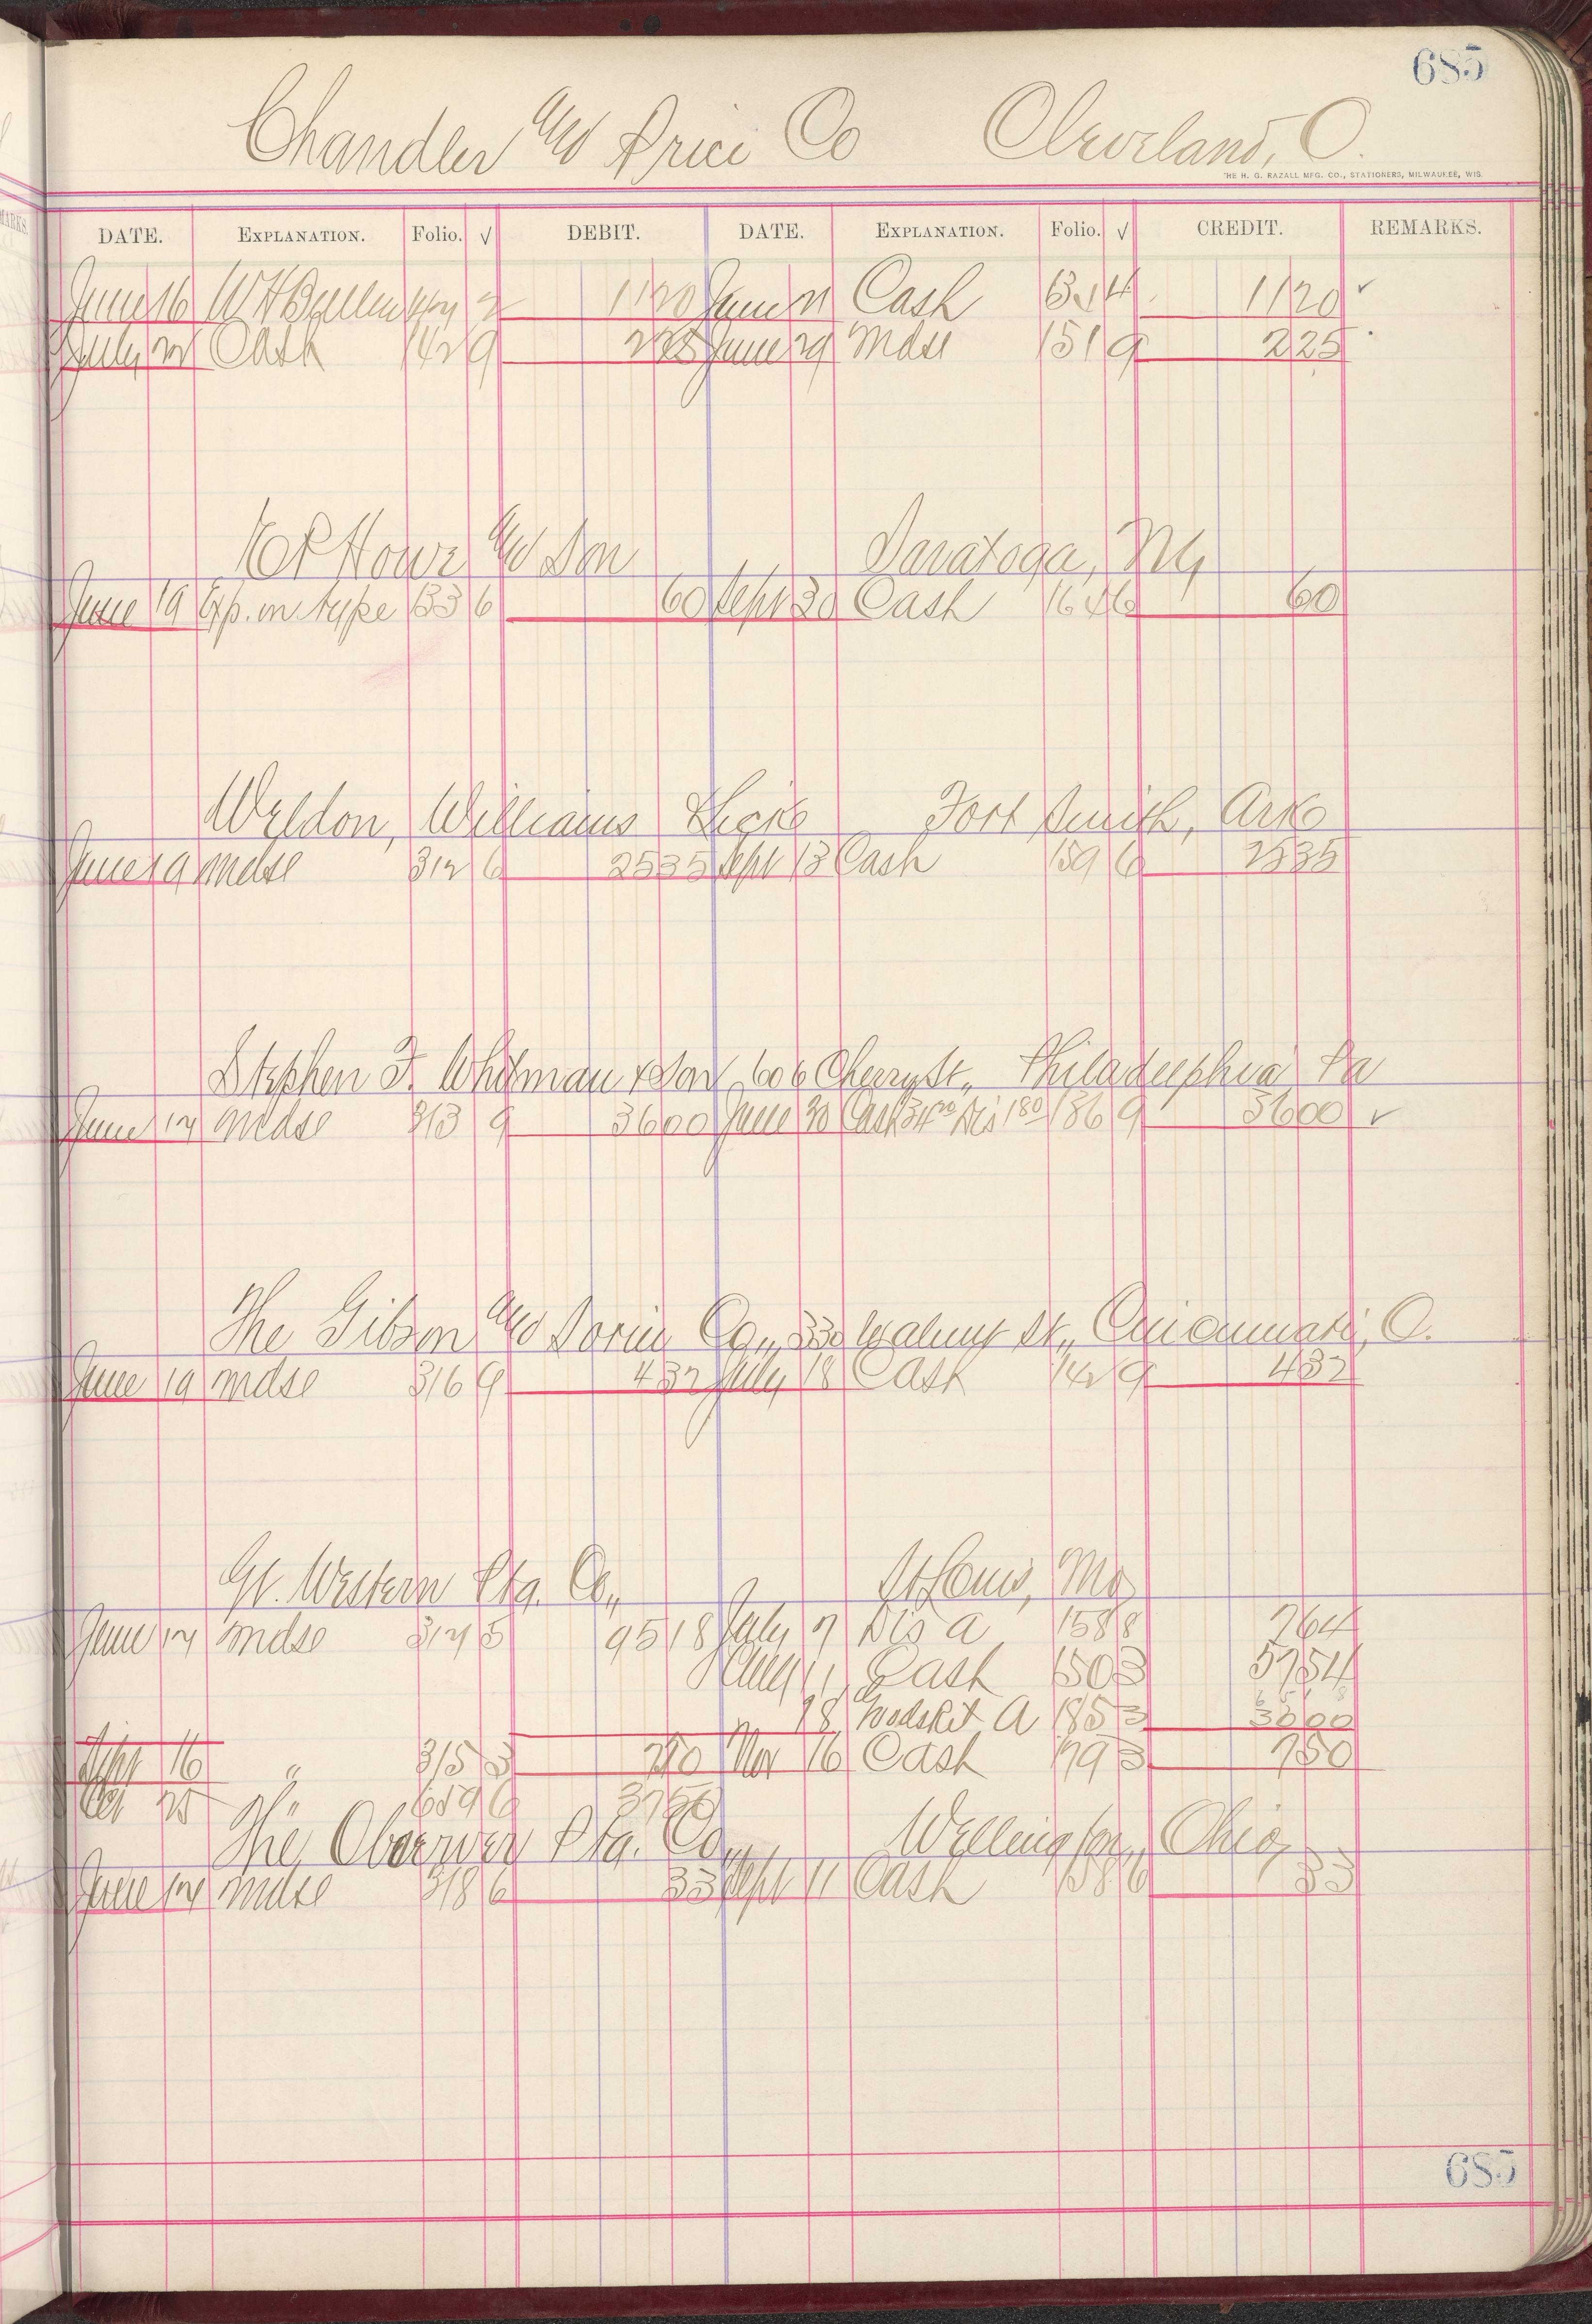 685
Chandler and Price Co Cleveland, O.
THE H. G. RAZALL MFG. CO., STATIONERS, MILWAUKEE, WIS.
DATE. EXPLANATION. Folio. √ DEBIT. DATE. EXPLANATION. Folio. √ CREDIT. REMARKS.
June 16 W H 2 1120 June 21 Cash 4 1120 ✓
July 22 Cash 142 9 225 June 29 Mdse 151 9 225
and Son Saratoga, NY
June 19 Exp. on type 133 6 60 Sept 30 Cash 164 6 60
Weldon, Williams & Lick Fort Smith, Ark
June 19 Mdse 312 6 2535 Sept 13 Cash 159 6 2535
Stephen F. Whitman & Son 606 Cherry St., Philadelphia Pa
June 17 Mdse 313 9 3600 June 30 Cash 34 20 Dis 1 80 136 9 3600 ✓
The Gibson and Sorin Co., 330 Walnut St., Cincinnati, O.
June 19 mdse 316 9 432 July 18 Cash 142 9 432
Gt. Western Ptg. Co., St Louis, Mo
June 17 mdse 317 5 9518 July 7 Dis a 158 8 764
Aug 11 Cash 150 3 5754
18 A 185 3 3000
Sept 16 " 315 3 750 Nov 16 Cash 179 3 750
Oct 25 " 6 3750
The Observer Ptg. Co., Wellington, Ohio,
June 17 mdse 318 6 33 Sept 11 Cash 158 6 33
685